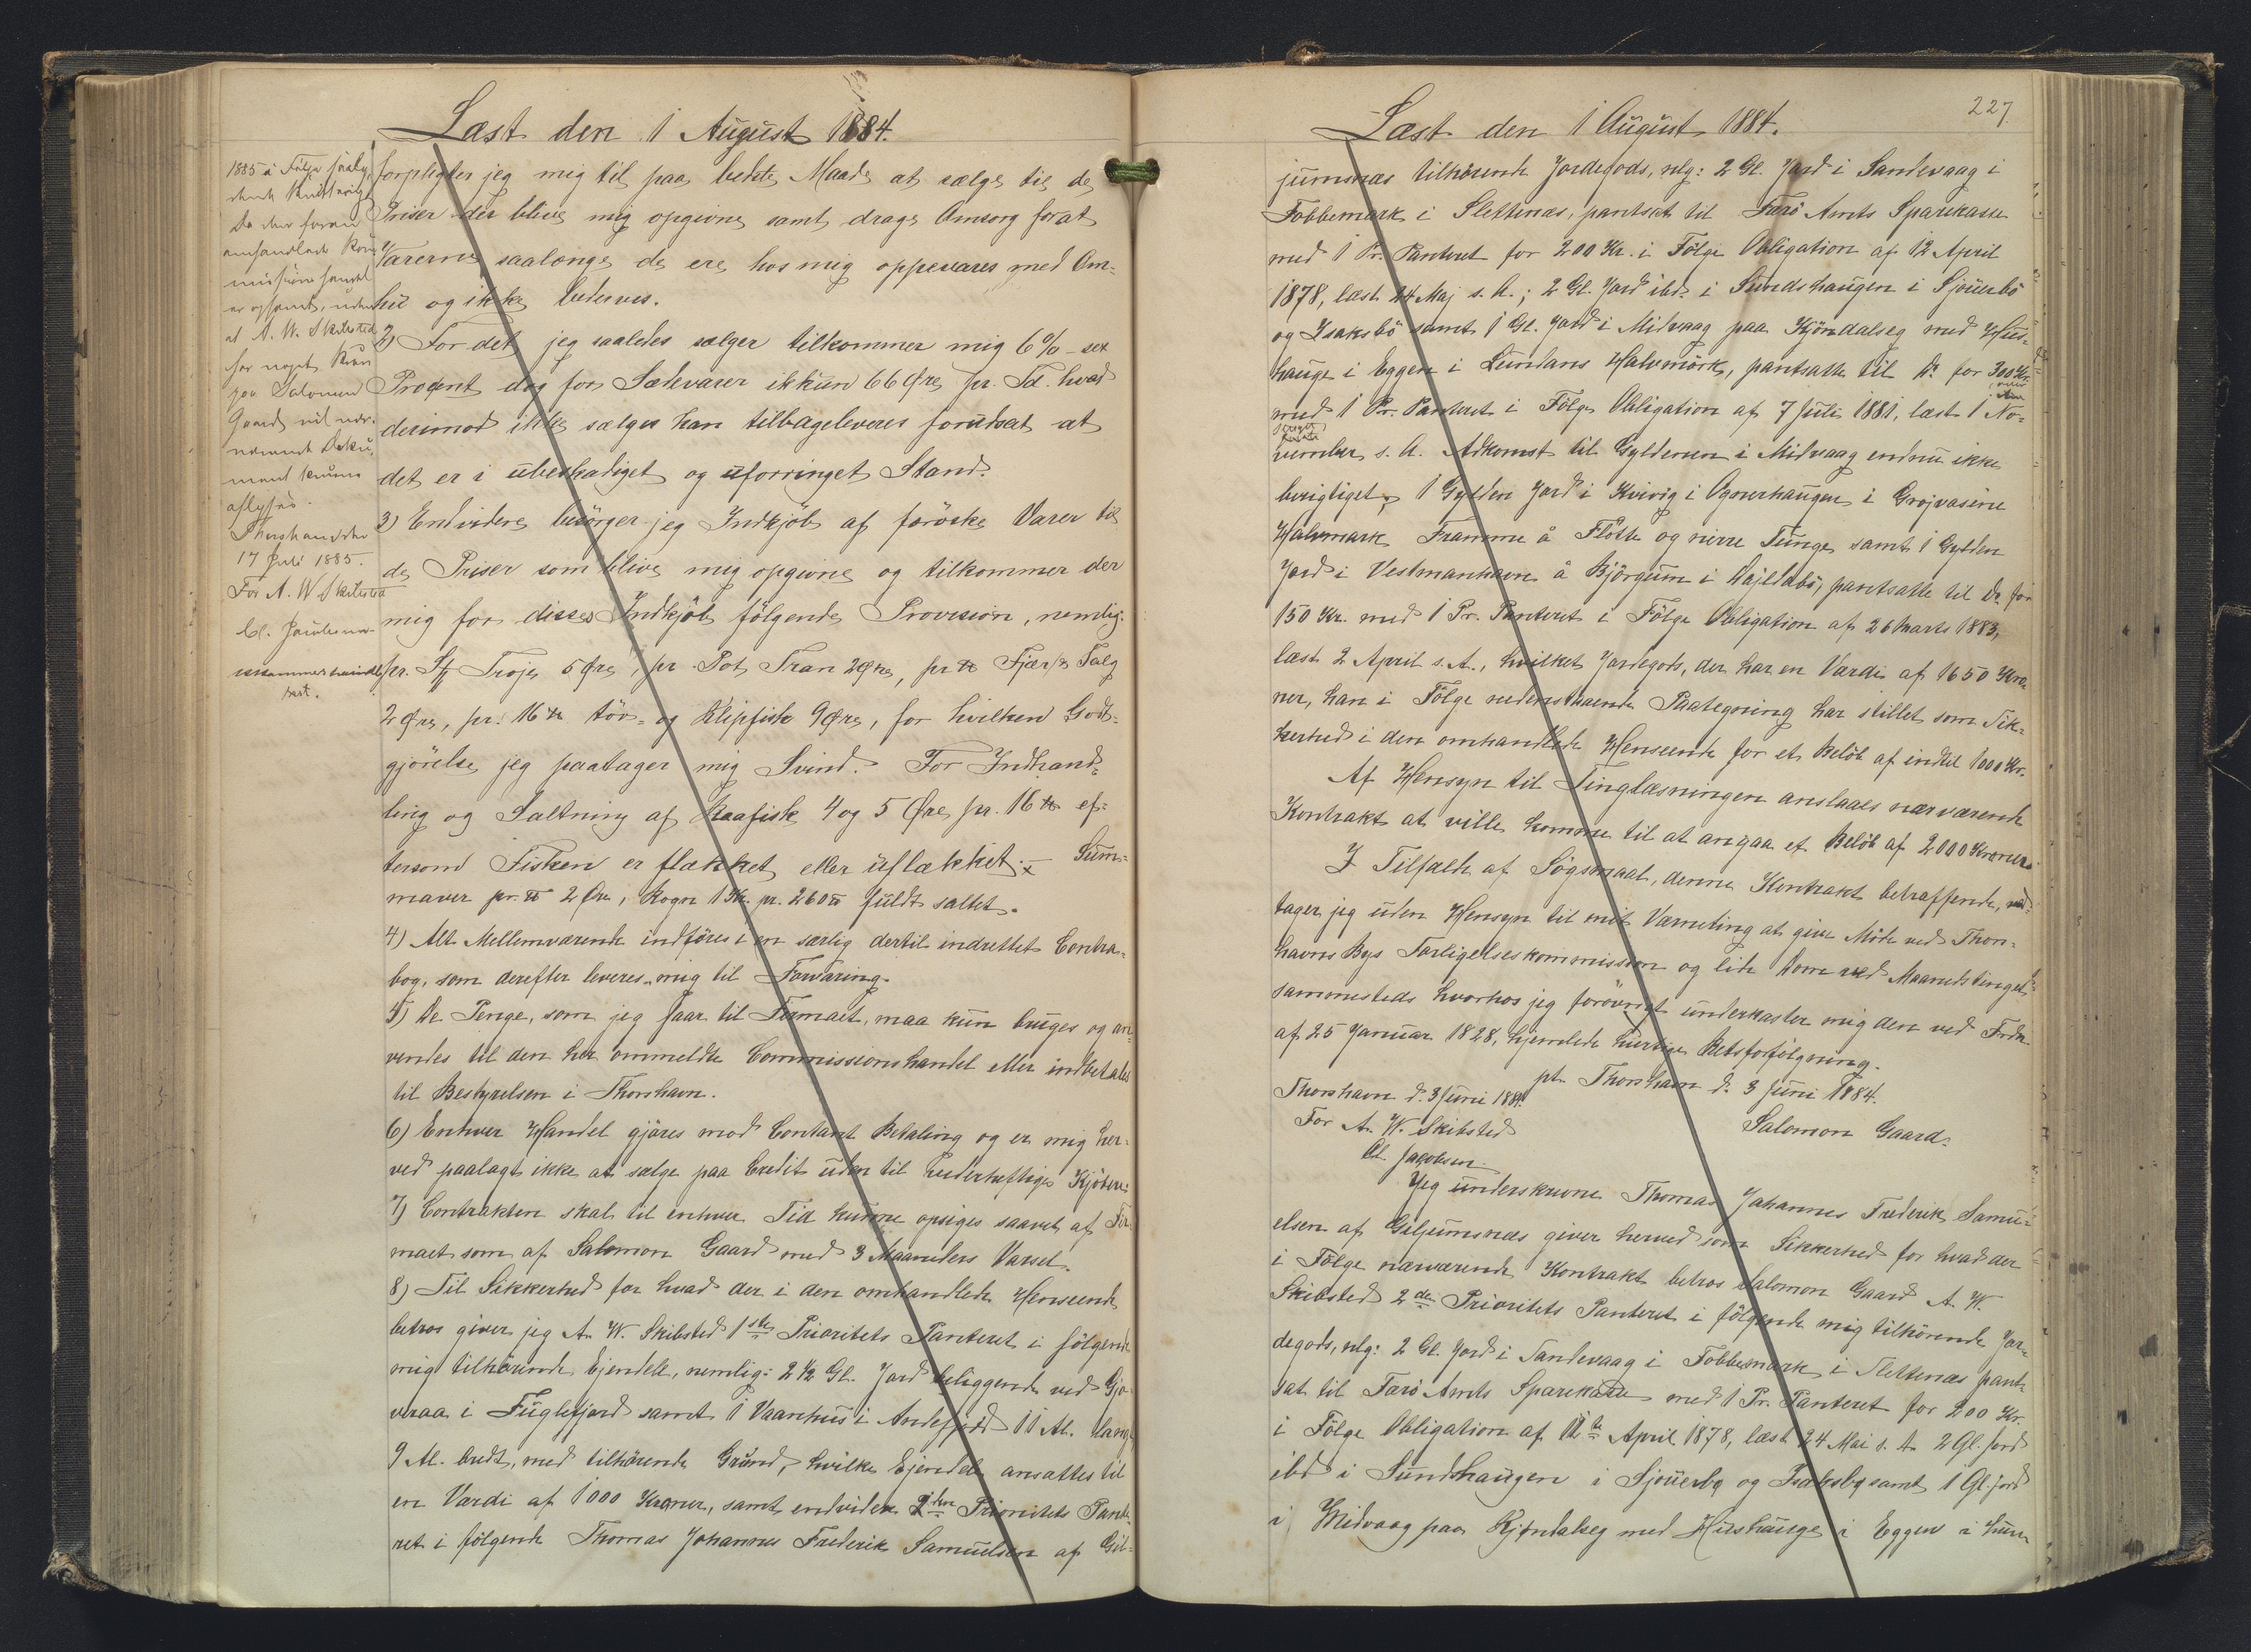 Læst den 1 August 1884.
1885 i Følge
Da den foran
omhandlede Kom
missionshandel
er ophævet, uden
at A. W. Skibsted
har noget Krav
paa Salomon
Gaard vil nær-
værende Doku,
ment kunne
aflyses.
Thorshavn den
17 Juli 1885.
For A. W Skibsted
Cl. Jacobsen
forpligter jeg mig til paa bedste Maade at sælge til de
Priser der blive mig opgivne samt drage Omsorg for at
Varerne saalænge de ere hos mig oppevares med Om-
hu og ikke bederves.
2) For det jeg saaledes sælger tilkommer mig 6% - sex
Procent dog for Sædevarer ikkun 66 Øre pr. Td. hvad
derimod ikke sælges kan tilbageleveres forudsat at
det er i ubeskadiget og uforringet Stand.
3) Endvidere besörger jeg Indkjöb af færöske Varer til
de Priser som blive mig opgivne og tilkommer der
mig for disse Indkjöb fölgende Provision, nemlig:
pr. St Troje 5 Øre, pr. Pot Tran 2 Øre, pr ℔ Fjær, ℔ Talg
2 Øre, pr. 16 ℔ tör- og Klipfisk 9 Øre, for hvilken Godt-
gjörelse jeg paatager mig Svind. For Indhand-
ling og Saltning af Raafisk 4 og 5 Øre pr. 16 ℔ ef-
tersom Fisken er flækket eller uflækket. - Sun-
maver pr. ℔ 2 Øre, Rogn 1 Kr. pr. 260 ℔ fuldt saltet.
4) Alt Mellemværende indföres i en særlig dertil indrettet Contra-
bog, som derefter leveres mig til Forvaring.
5) De Penge, som jeg faar til Firmaet, maa kun bruges og an-
vendes til den her ommeldte Commissionshandel eller indbetales
til Bestyrelsen i Thorshavn.
6) Enhver Handel gjöres mod Contant Betaling og er mig her-
ved paalagt ikke at sælge paa Credit uden til vederheftige Kjöbere.
7) Contrakten skal til enhver Tid kunne opsiges saavel af Fir-
maet som af Salomon Gaard med 3 Maaneders Varsel.
8) Til Sikkerhed for hvad der i den omhandlede Henseende
betros giver jeg A. W. Skibsted 1ste Prioritets Panteret i fölgende
mig tilhörende Ejendele, nemlig: 2 1/2 Gl. Jord beliggende ved Gjo-
veraa i Fuglefjord samt 1 Vaanhus i Andefjord 11 Al. lang
9 Al. bredt, med tilhörende Grund, hvilke Ejendele ansættes til
en Værdi af 1000 Kroner, samt endvidere 2den Prioritets Pante
ret i fölgende Thomas Johannes Frederik Samuelsen af Gil-
227.
Læst den 1 August 1884.
jumnæs tilhörende Jordegods, nlg: 2 Gl. Jord i Sandevaag i
Tobbemark i Slettenæs, pantsat til Færö Amts Sparekasse
med 1 Pr. Panteret for 200 Kr. i Fölge Obligation af 12 April
1878, læst 24 Maj s. A.; 2 Gl. Jord ibd. i Sundshaugen i Sjouerbö
og Isaksbö samt 1 Gl. Jord i Midvaag paa Kjöndalseg med Hus-
hauge i Eggen i Lundans Halvmörk, pantsatte til Do. for 300 Kr.
med 1 Pr. Panteret i Fölge Obligation af 7 Juli 1881, læst 1 No-
vember s. A. Adkomst til Gyldenen i Midvaag endnu ikke
berigtiget, 1 Gylden Jord i Kvivig i Ognerhaugen i Grojvasine
Halvmark Framme å Flötte og nirre Tunge samt 1 Gylden
Jord i Vestmanhavn å Björgum i Hajeldabö, pantsatte til Do. for
150 Kr. med 1 Pr. Panteret i Fölge Obligation af 26 Marts 1883,
læst 2 April s. A., hvilket Jordegods, der har en Værdi af 1650 Kro
ner, han i Fölge nedenstaaende Paategning har stillet som Sik-
kerhed i den omhandlede Henseende for et Belöb af indtil 1000 Kr.
Af Hensyn til Tinglæsningen anslaaes nærværende
Kontrakt at ville komme til at angaa et Belöb af 2000 Kroner.
I Tilfælde af Sögsmaal, denne Kontrakt betræffende, ved-
tager jeg uden Hensyn til mit Værneting at give Möde ved Thors-
havns Bys Forligelseskommission og lide Dom ved Maanedstinget
sammesteds hvorhos jeg forövrigt underkaster mig den ved Frdn.
af 25 Januar 1828, hjemlede hurtige Retsforfölgning.
pt. Thorshavn d. 3 Juni 1884.
Salomon Gaard.
Thorshavn d. 3 Juni 1884.
For A. W. Skibsted
Cl. Jacobsen
Jeg underskrevne Thomas Johannes Frederik Samu-
elsen af Giljumsnæs giver herved som Sikkerhed for hvad der
i Fölge nærværende Kontrakt betros Salomon Gaard A. W.
Skibsted 2den Prioritets Panteret i fölgende mig tilhörende Jor-
degods, nlg: 2 Gl. Jord i Sandevaag i Tobbemark i Slettenæs pant-
sat til Færö Amts Sparekasse med 1 Pr. Panteret for 200 Kr.
i Fölge Obligation af 12te April 1878, læst 24 Mai s. A. 2 Gl. Jord
ibd i Sundshaugen i Sjouerbø og Isaksbø samt 1 Gl. Jord
i Midvaag paa Kjøndalseg med Hushauge i Eggen i Lun